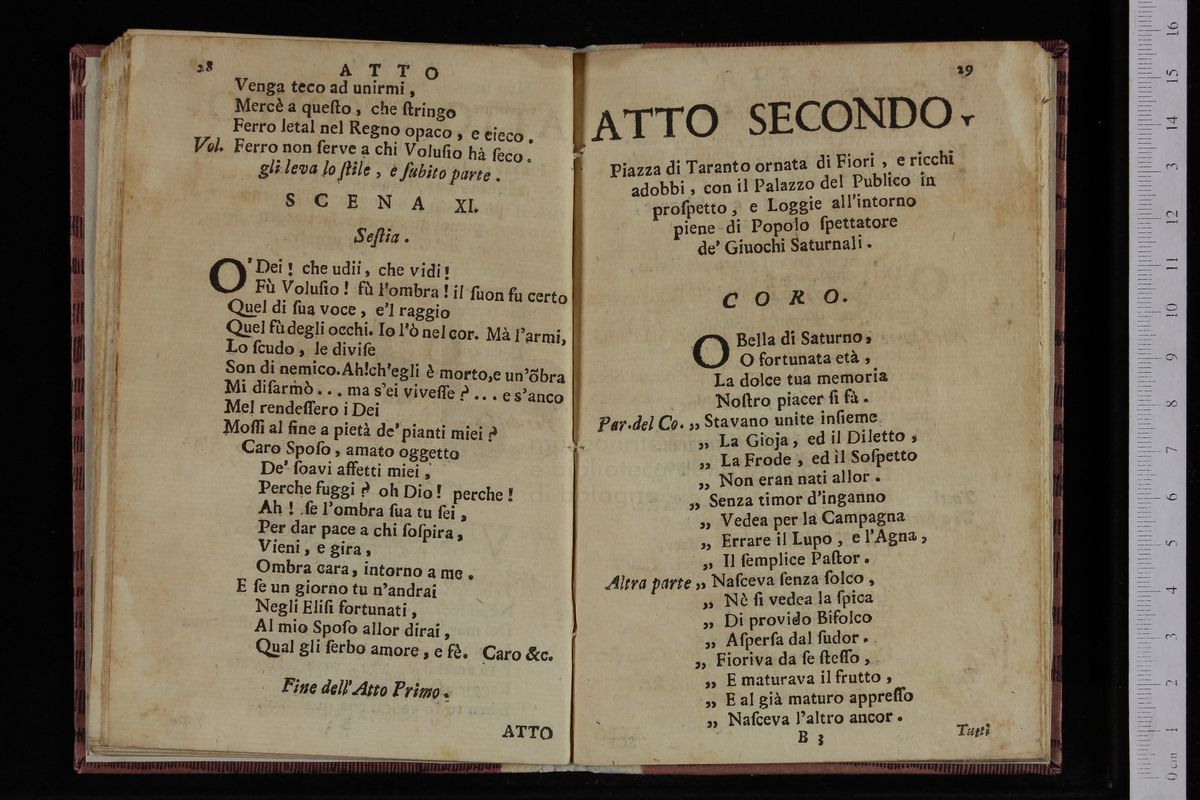 28
ATTO
Venga teco ad unirmi,
Mercè a queſto, che ſtringo
Ferro letal nel Regno opaco, e cieco.
Vol. Ferro non ſerve a chi Voluſio hà ſeco.
gli leva lo ſtile, e ſubito parte.
SCENA XI.
Seſtia.
O' Dei! che udii, che vidi!
Fù Voluſio! fù l'ombra! il ſuon fu certo
Quel di ſua voce, e'l raggio
Quel fù degli occhi. Io l'ò nel cor. Mà l'armi,
Lo ſcudo, le diviſe
Son di nemico. Ah! ch'egli è morto, e un'õbra
Mi diſarmò... ma s'ei viveſſe?... e s'anco
Mel rendeſſero i Dei
Moſſi al fine a pietà de' pianti miei?
Caro Spoſo, amato oggetto
De' ſoavi affetti miei,
Perche fuggi? oh Dio! perche!
Ah! ſe l'ombra ſua tu ſei,
Per dar pace a chi ſoſpira,
Vieni, e gira,
Ombra cara, intorno a me.
E ſe un giorno tu n'andrai
Negli Eliſi fortunati,
Al mio Spoſo allor dirai,
Qual gli ſerbo amore, e fè. Caro &c.
Fine dell'Atto Primo.
ATTO
29
ATTO SECONDO.
Piazza di Taranto ornata di Fiori, e ricchi
adobbi, con il Palazzo del Publico in
proſpetto, e Loggie all'intorno
piene di Popolo ſpettatore
de' Giuochi Saturnali.
CORO.
O Bella di Saturno,
O fortunata età,
La dolce tua memoria
Noſtro piacer ſi fà.
Par. del Co. „ Stavano unite inſieme
„ La Gioja, ed il Diletto,
„ La Frode, ed il Soſpetto
„ Non eran nati allor.
„ Senza timor d'inganno
„ Vedea per la Campagna
„ Errare il Lupo, e l'Agna,
„ Il ſemplice Paſtor.
Altra parte „ Naſceva ſenza ſolco,
„ Nè ſi vedea la ſpica
„ Di provido Bifolco
„ Aſperſa dal ſudor.
„ Fioriva da ſe ſteſſo,
„ E maturava il frutto,
„ E al già maturo appreſſo
„ Naſceva l'altro ancor.
B 3
Tutti